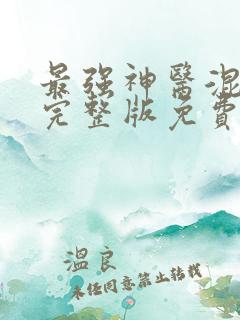 最强神醫混
完整版免費
溫良
未经同意禁止转载